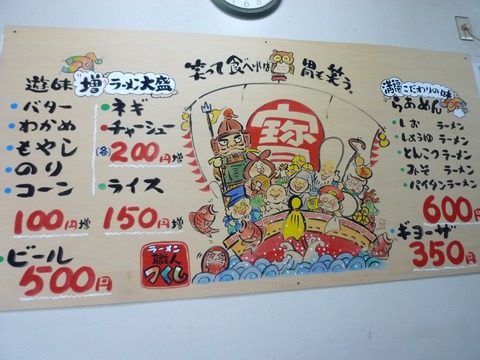 笑って食べれば 胃も笑う。
遊味 増 ラーメン大盛
バター
わかめ
もやし
のり
コーン
100円増
ネギ
チャーシュー
(各) 200円増
ライス
150円増
ビール
500円
ラーメン
職人
つくし
寳
満福 こだわりの味
らあめん
しお ラーメン
しょうゆ ラーメン
とんこつラーメン
みそ ラーメン
パイタンラーメン
600円
ギョーザ
350円